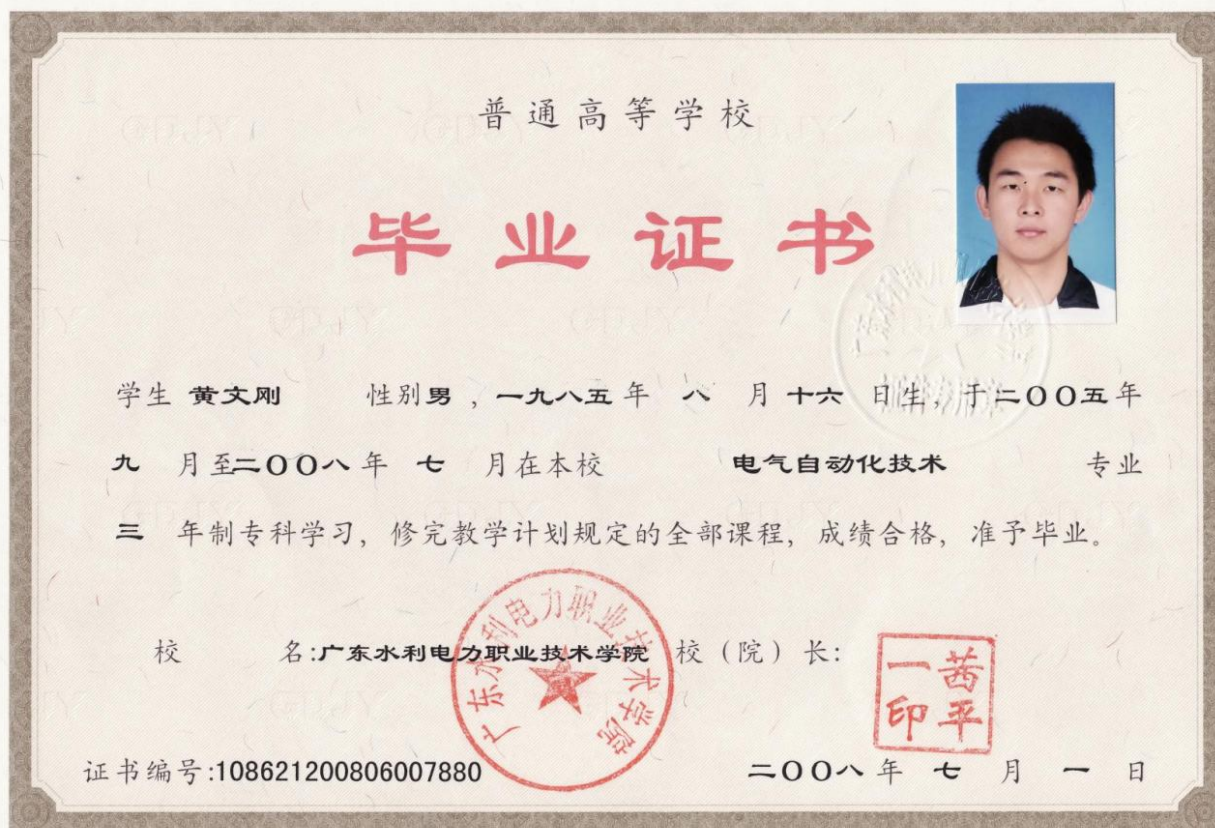 普通高等学校
毕业证书
学生 黄文刚 性别男，一九八五年 八 月十六 日生，于二〇〇五年
九 月至二〇〇八年 七 月在本校 电气自动化技术 专业
三 年制专科学习，修完教学计划规定的全部课程，成绩合格，准予毕业。
校 名:广东水利电力职业技术学院 校（院）长:
广东水利电力职业技术学院
茜平一印
证书编号:108621200806007880 二〇〇八年 七 月 一 日